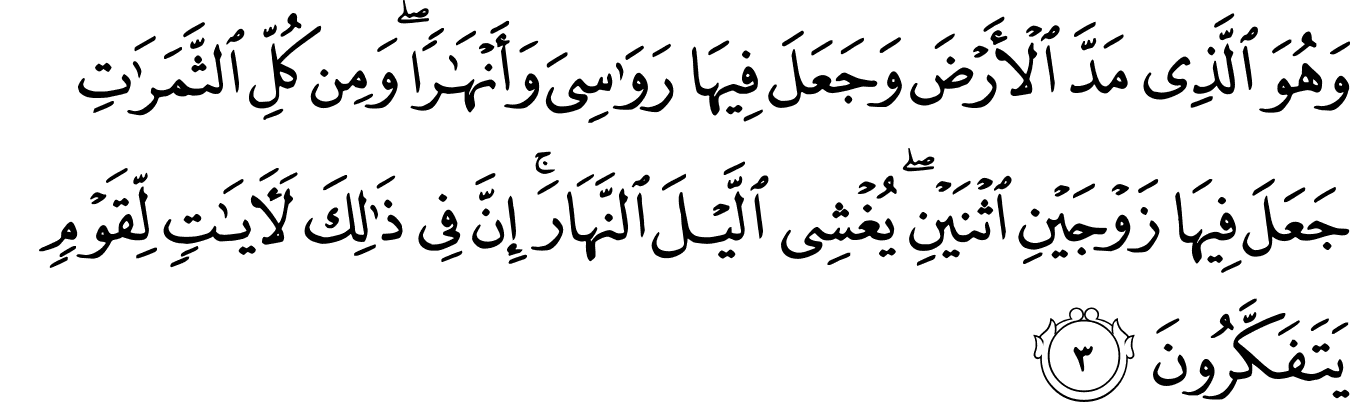 وَهُوَ ٱلَّذِى مَدَّ ٱلْأَرْضَ وَجَعَلَ فِيهَا رَوَٰسِىَ وَأَنْهَـٰرًا ۖ وَمِن كُلِّ ٱلثَّمَرَٰتِ
جَعَلَ فِيهَا زَوْجَيْنِ ٱثْنَيْنِ ۖ يُغْشِى ٱلَّيْلَ ٱلنَّهَارَ ۚ إِنَّ فِى ذَٰلِكَ لَـَٔايَـٰتٍ لِّقَوْمٍ
يَتَفَكَّرُونَ ٣